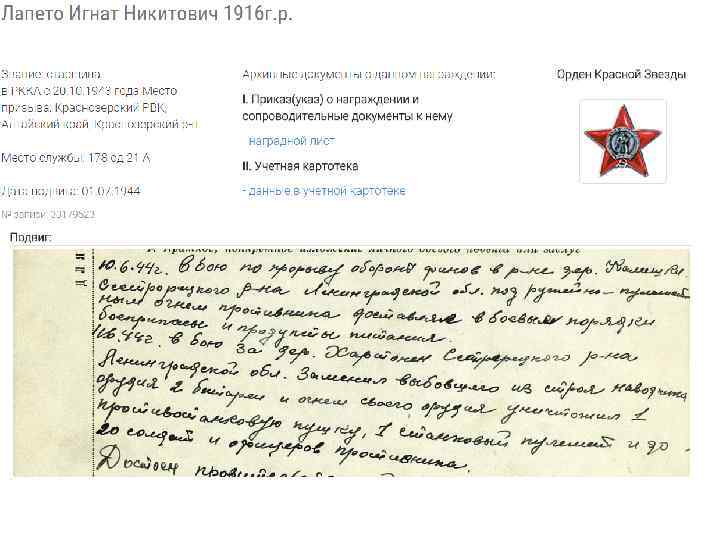 Лапето Игнат Никитович 1916г.р.
Звание: старшина
в РККА с 20.10.1943 года Место
призыва: Краснозерский РВК,
Алтайский край, Краснозерский р-н
Место службы: 178 сд 21 А
Дата подвига: 01.07.1944
№ записи: 33179523
Архивные документы о данном награждении:
I. Приказ(указ) о награждении и
сопроводительные документы к нему
- наградной лист
II. Учетная картотека
- данные в учетной картотеке
Орден Красной Звезды
Подвиг:
I. Краткое, конкретное изложение личного боевого подвига или заслуг
10.6.44г. В бою по прорыву обороны финов в р-не дер.
Сестрорецкого р-на Ленинградской обл. под ружейно-пулемет
ным огнем противника доставлял в боевые порядки
боеприпасы и продукты питания.
в бою за дер. Сестрорецкого р-на
Ленинградской обл. Заменил выбывшего из строя наводчика
орудия 2 батареи и огнем своего орудия уничтожил 1
противотанковую пушку, 1 станковый пулемет и до
20 солдат и офицеров противника.
Достоин